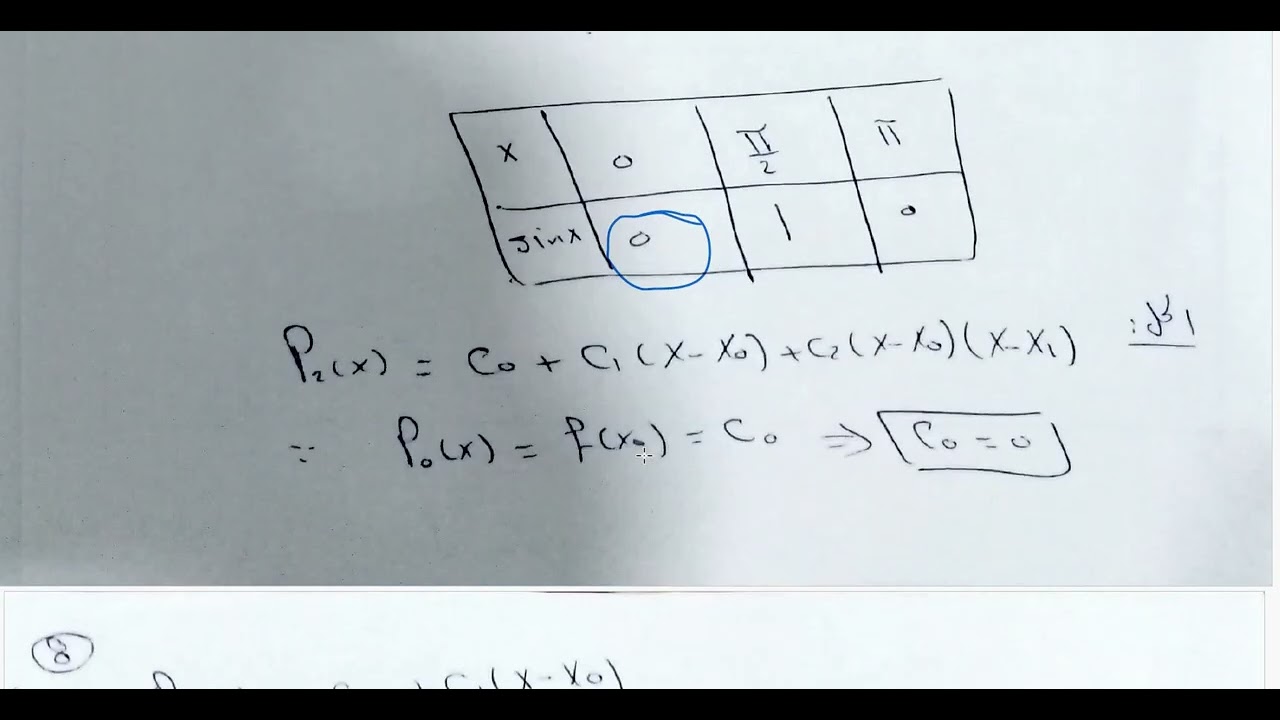 x 0 π/2 π
sinx 0 1 0
الحل:
P₂(x) = C₀ + C₁(x-x₀) + C₂(x-x₀)(x-x₁)
∵ P₀(x) = f(x₀) = C₀ ⇒ C₀ = 0
8
C₁(x-x₀)